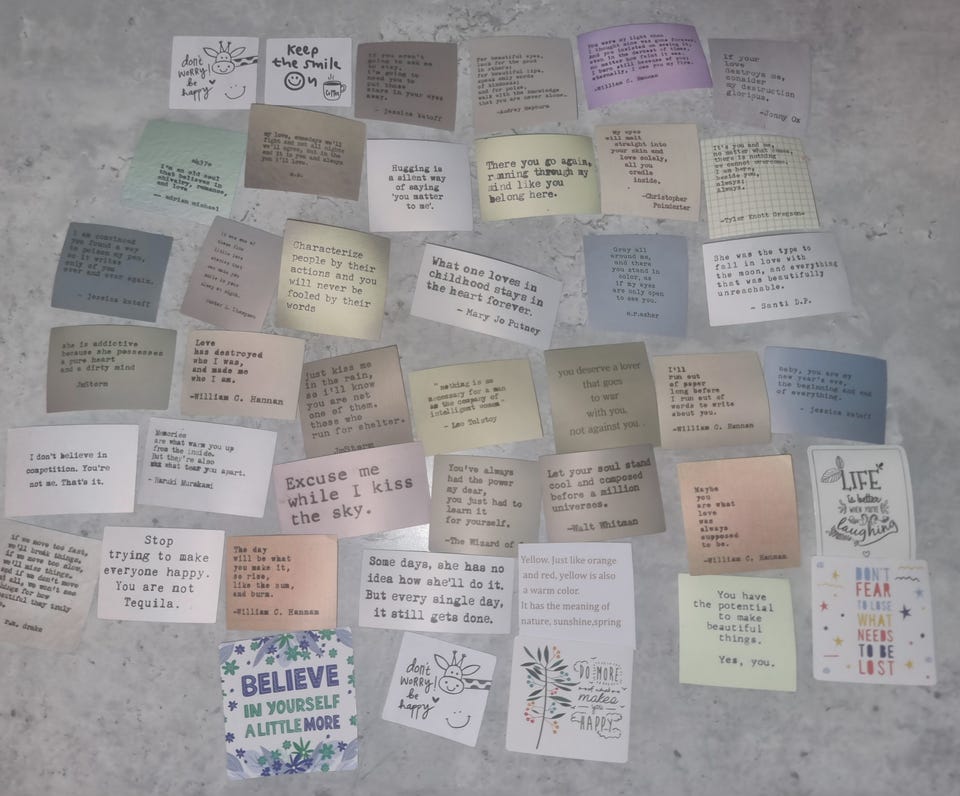 don't
WORRY!
be
happy
Keep
the smile
On
if you aren't
going to ask me
to stay,
i'm going to
need you to
put those
stars in your eyes
away.
- jessica katoff
For beautiful eyes,
look for the good
in others;
for beautiful lips,
speak only words
of kindness;
and for poise,
walk with the knowledge
that you are never alone.
-Audrey Hepburn
You were my light when
I thought mine was gone forever,
And you insisted on seeing it,
even in the darkest of times,
no matter how faint it was.
I burn still because of you;
eternally, I owe you my fire.
-William C. Hannan
if your
love
destroys me,
consider
my destruction
glorious.
-Jonny Ox
i'm an old soul
that believes in
chivalry, romance,
and love
-- adrian michael
my love, somedays we'll
fight and not all nights
we'll agree, but in the
end it is you and always
you i'll love.
Hugging is
a silent way
of saying
'you matter
to me'.
There you go again,
running through my
mind like you
belong here.
My eyes
will melt
straight into
your skin and
love solely,
all you
cradle
inside.
-Christopher
Poindexter
It's you and me,
no matter what comes,
there is nothing
we cannot overcome.
I am here,
beside you,
always;
Always.
-Tyler Knott Gregson-
i am convinced
you found a way
to poison my pen,
so it writes
only of you
over and over again.
- jessica katoff
Characterize
people by their
actions and you
will never be
fooled by their
words
What one loves in
childhood stays in
the heart forever.
- Mary Jo Putney
Gray all
around me,
and there
you stand in
color, as
if my eyes
are only open
to see you.
She was the type to
fall in love with
the moon, and everything
that was beautifully
unreachable.
- Santi D.P.
she is addictive
because she possesses
a pure heart
and a dirty mind
JmStorm
Love
has destroyed
who I was,
and made me
who I am.
-William C. Hannan
just kiss me
in the rain,
so i'll know
you are not
one of them.
those who
run for shelter.
JmStorm
"nothing is so
necessary for a man
as the company of
intelligent women"
- Leo Tolstoy
you deserve a lover
that goes
to war
with you,
not against you.
I'll
run out
of paper
long before
I run out of
words to write
about you.
-William C. Hannan
baby, you are my
new year's eve,
the beginning and end
of everything.
- jessica katoff
I don't believe in
competition. You're
not me. That's it.
Memories
are what warm you up
from the inside.
But they're also
what tear you apart.
- Haruki Murakami
Excuse me
while I kiss
the sky.
You've always
had the power
my dear,
you just had to
learn it
for yourself.
-The Wizard of
Let your soul stand
cool and composed
before a million
universes.
-Walt Whitman
Maybe
you
are what
love
was
always
supposed
to be.
-William C. Hannan
LIFE
is better
WHEN YOU'RE
Laughing
if we move too fast,
we'll break things.
if we move too slow,
we'll miss things.
and if we don't move
at all, we won't see
things for how
beautiful they truly
Stop
trying to make
everyone happy.
You are not
Tequila.
The day
will be what
you make it,
so rise,
like the sun,
and burn.
-William C. Hannan
Some days, she has no
idea how she'll do it.
But every single day,
it still gets done.
Yellow. Just like orange
and red, yellow is also
a warm color.
It has the meaning of
nature, sunshine,spring
You have
the potential
to make
beautiful
things.
Yes, you.
DON'T
FEAR
TO LOSE
WHAT
NEEDS
TO BE
LOST
BELIEVE
IN YOURSELF
A LITTLE MORE
don't
WORRY!
be
happy
DO MORE
makes
you
HAPPY